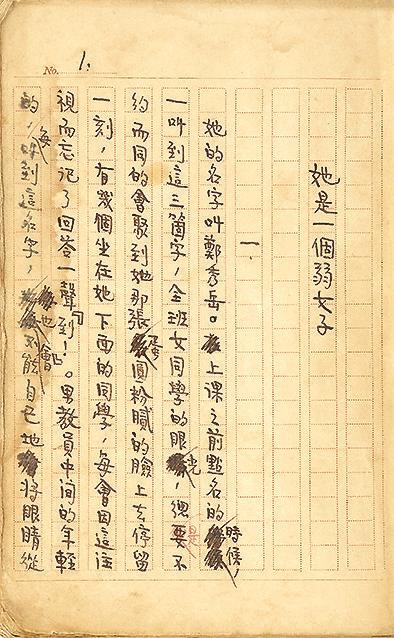 No. 1.
她是一個弱女子
一
她的名字叫鄭秀岳。上課之前點名的時候,
一叫到這三箇字,全班女同學的眼光,總是不
約而同的會聚到她那張蛋圓粉膩的臉上去停留
一刻,有幾個坐在她下面的同學,每會因這注
視而忘記了回答一聲『到!』。男教員中間的年輕
的,每叫到這名字,也會不能自已地將眼睛從